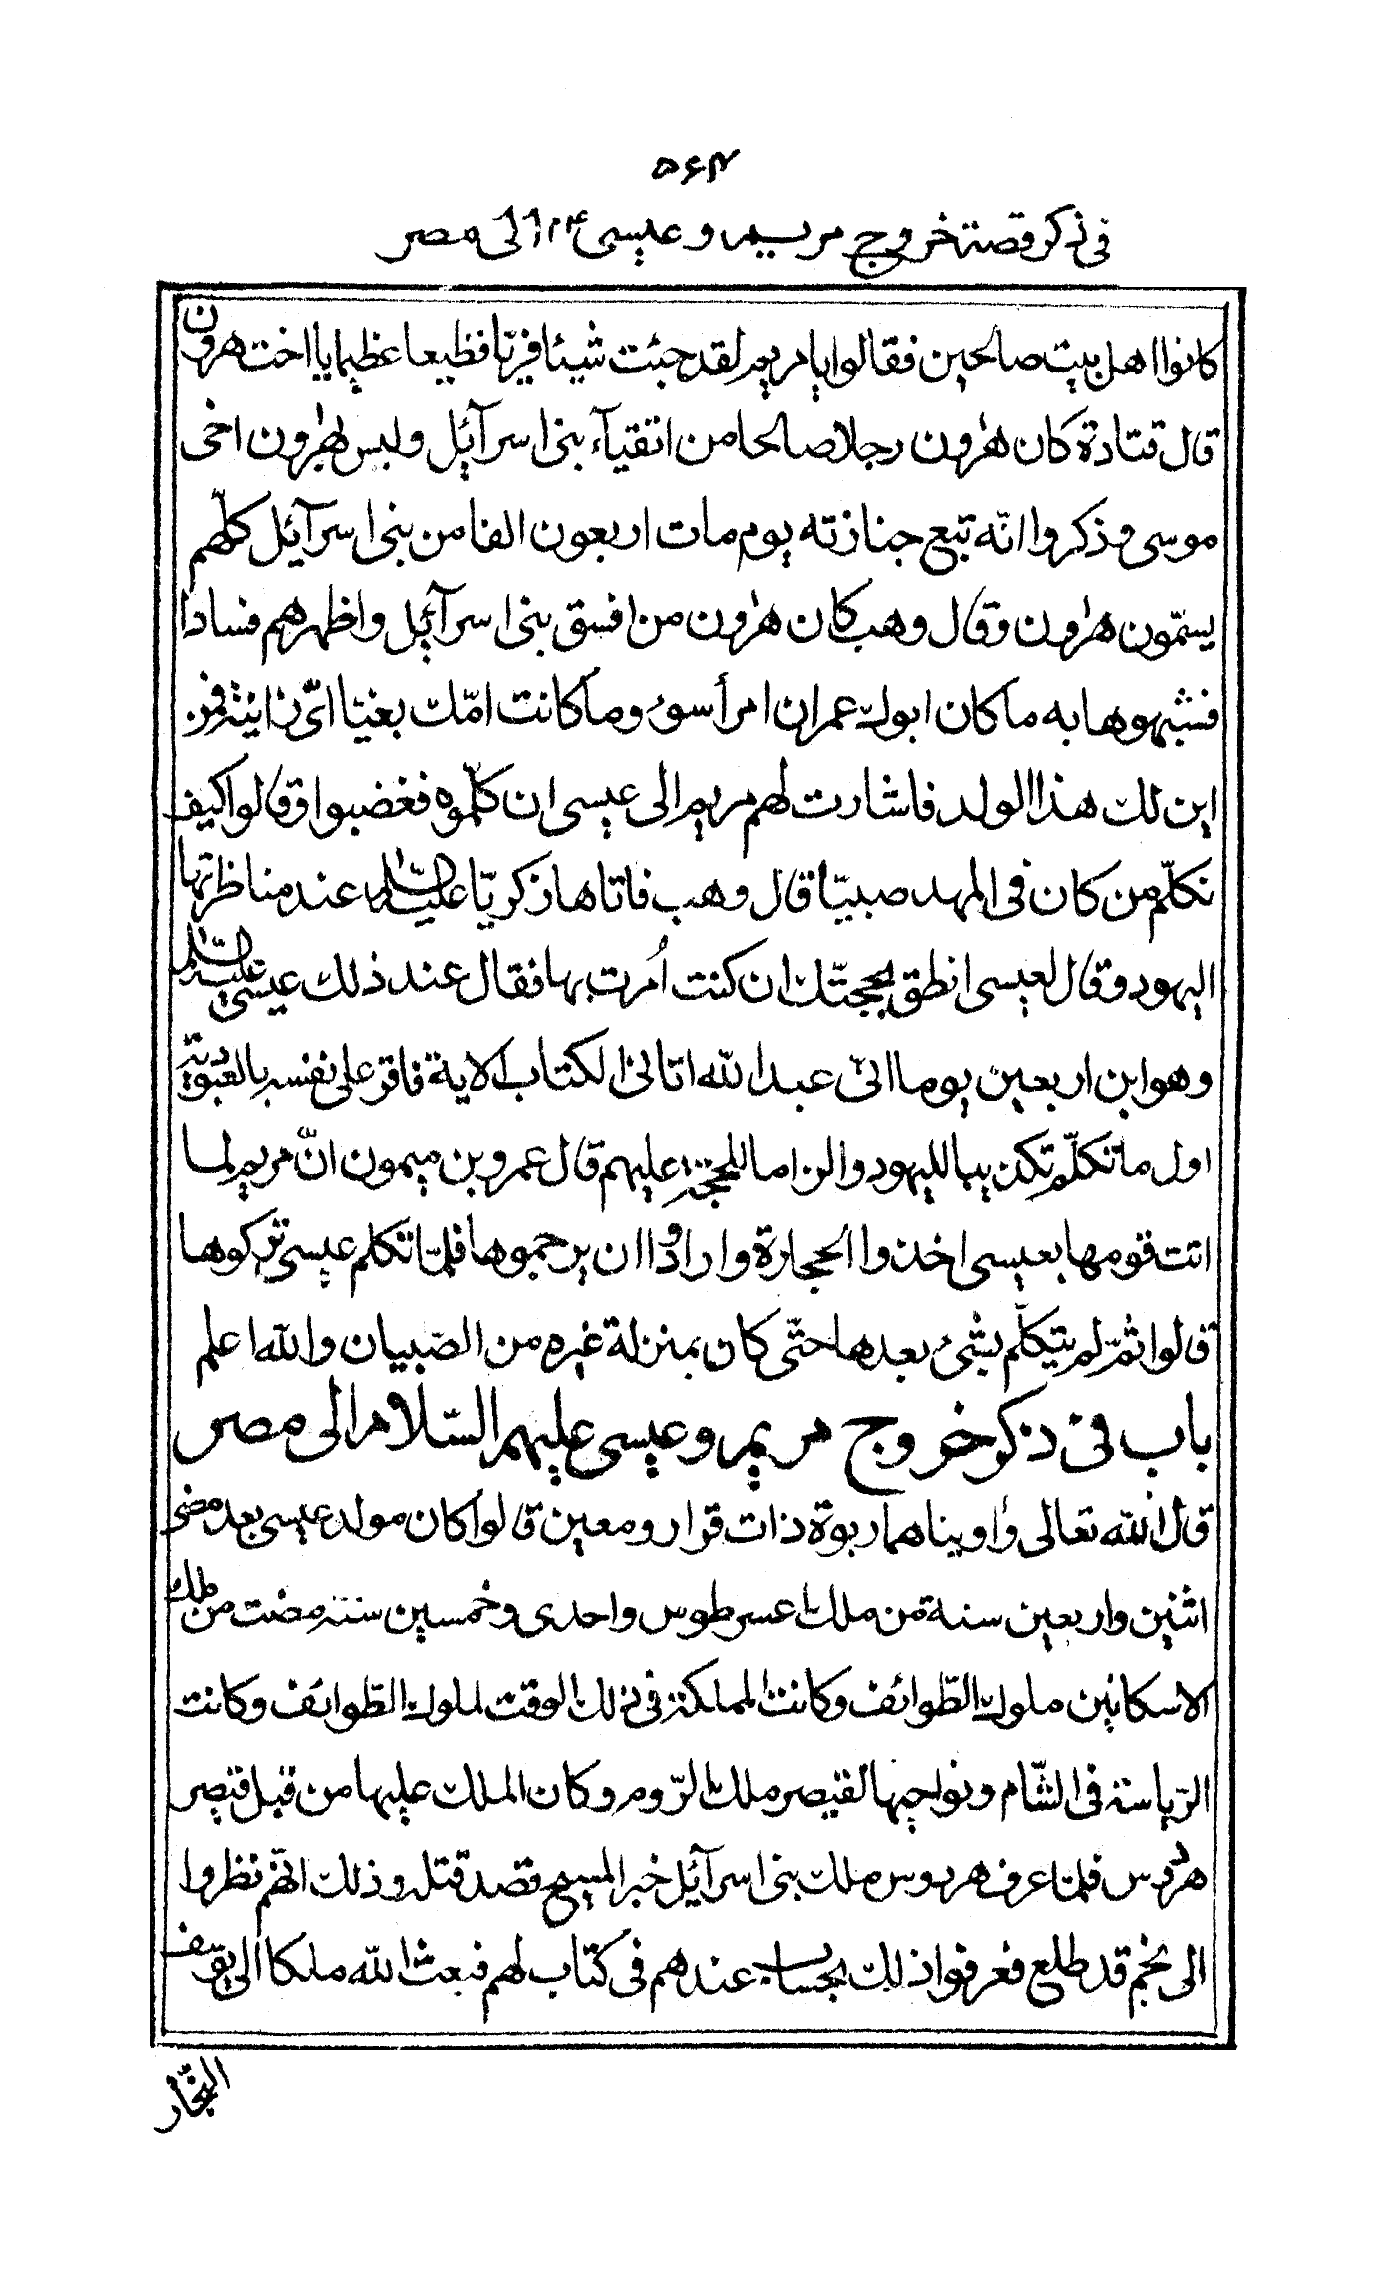 ۵۶۴
فی ذکر قصة خروج مریم و عیسی الی مصر
کانوا اهل بیت صالحین فقالوا یا مریم لقد جئت شیئا فریّا فظیعا عظیما یا اخت هرون
قال قتادة کان هرون رجلا صالحا من اتقیآء بنی اسرآئیل ولیس بهرون اخی
موسی وذکروا انّه تبع جنازته یوم مات اربعون الفا من بنی اسرآئیل کلّهم
یسمّون هرون وقال وهب کان هرون من افسق بنی اسرآئیل واظهرهم فسادا
فشبهوها به ما کان ابوک عمران امرأ سوء وما کانت امّک بغیّا ای زانیة فمن
این لک هذا الولد فاشارت لهم مریم الی عیسی ان کلّموه فغضبوا وقالوا کیف
نکلّم من کان فی المهد صبیّا قال وهب فاتاها زکریّا علیه السّلام عند مناظرتها
الیهود وقال لعیسی انطق بحجتّک ان کنت اُمرت بها فقال عند ذلک عیسی علیه السّلام
وهو ابن اربعین یوما انّی عبد الله اتانی الکتاب الایة فاقر علی نفسه بالعبودیّة
اول ما تکلّم تکذیبا للیهود والزاما للحجّة علیهم قال عمرو بن میمون انّ مریم لما
اتت قومها بعیسی اخذوا الحجارة وارادوا ان یرجموها فلمّا تکلم عیسی ترکوها
قالوا ثمّ لم یتکلّم بشیء بعدها حتّی کان بمنزلة غیره من الصّبیان والله اعلم
باب فی ذکر خروج مریم وعیسی علیهم السّلام الی مصر
قال الله تعالی واویناهما ربوة ذات قرار ومعین قالوا کان مولد عیسی بعد مضی
اثنین واربعین سنة من ملک عسرطوس واحدی وخمسین سنة مضت من ملک
الاسکانین ملوک الطّوائف وکانت المملکة فی ذلک الوقت لملوک الطّوائف وکانت
الرّیاسة فی الشّام ونواحیها لقیصر ملک الرّوم وکان الملک علیها من قبل قیصر
هردوس فلمّا عرف هردوس ملک بنی اسرآئیل خبر المسیح قصد قتله وذلک انّهم نظروا
الی نجم قد طلع فعرفوا ذلک بحساب عندهم فی کتاب لهم فبعث الله ملکا الی یوسف
النجّار